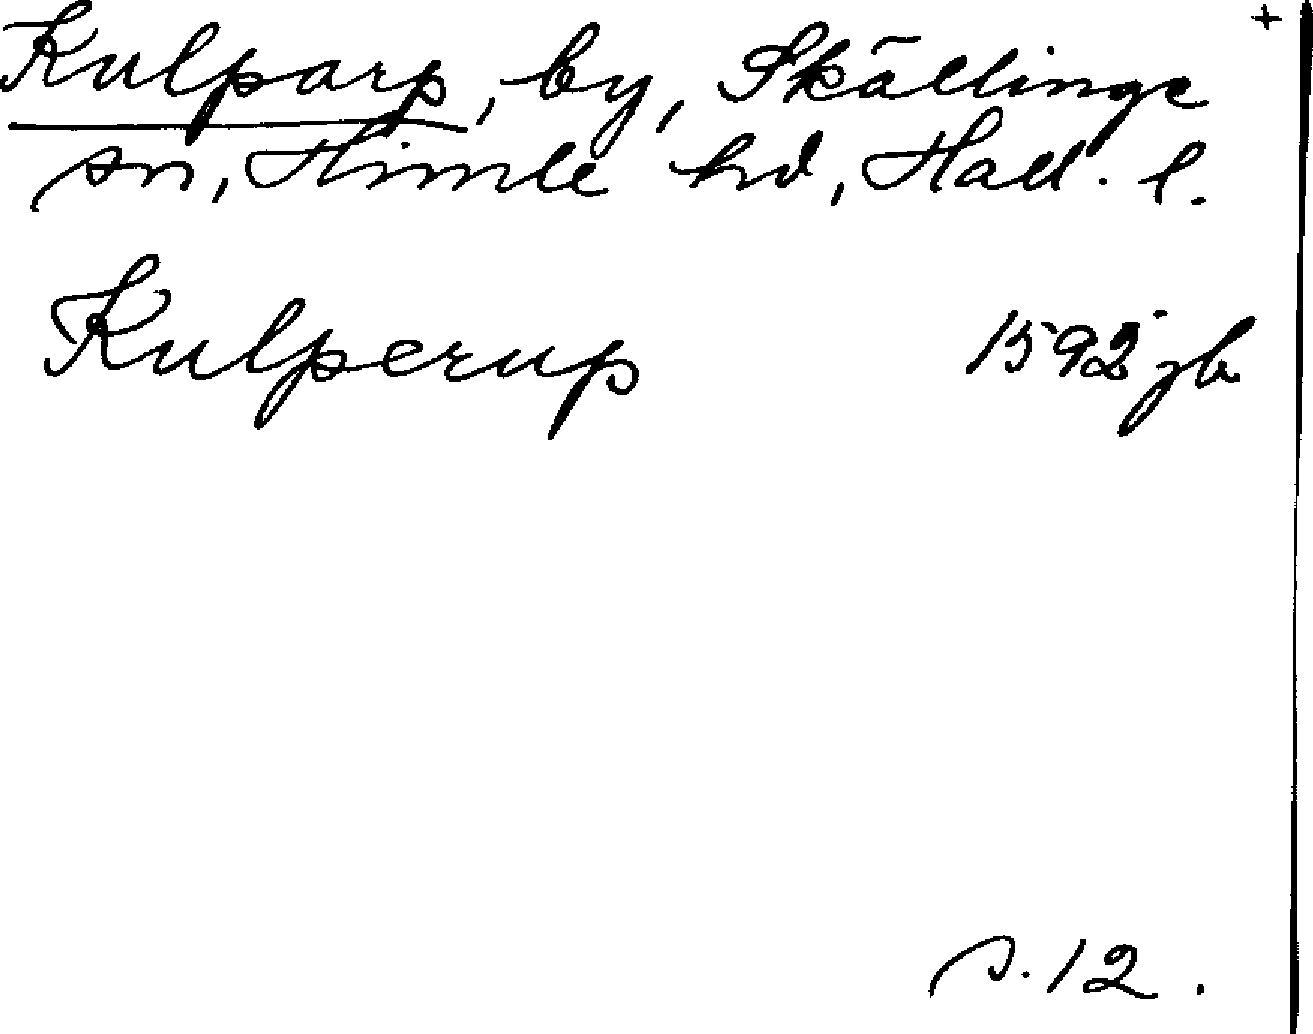 +
Kulparp, by, Skällinge
sn, Himle hd, Hall. l.
Kulperup 1592 jb
s. 12.